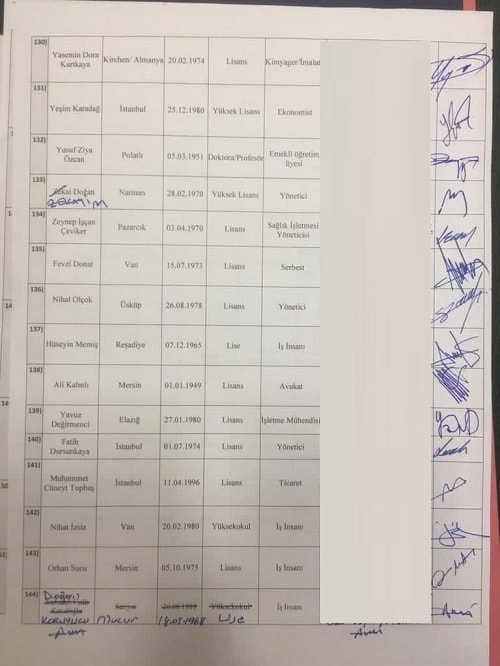 130) Yasemin Dora Kurtkaya Kirchen/ Almanya 20.02.1974 Lisans Kimyager/İmalat
131) Yeşim Karadağ İstanbul 25.12.1980 Yüksek Lisans Ekonomist
132) Yusuf Ziya Özcan Polatlı 05.03.1951 Doktora/Profesör Emekli öğretim üyesi
133) Zekai Doğan Narman 28.02.1970 Yüksek Lisans Yönetici
134) Zeynep İşçan Çeviker Pazarcık 03.04.1970 Lisans Sağlık İşletmesi Yöneticisi
135) Fevzi Donat Van 15.07.1973 Lisans Serbest
136) Nihal Olçok Üsküp 26.08.1978 Lisans Yönetici
137) Hüseyin Memiş Reşadiye 07.12.1965 Lise İş İnsanı
138) Ali Kalınlı Mersin 01.01.1949 Lisans Avukat
139) Yavuz Değirmenci Elazığ 27.01.1980 Lisans İşletme Mühendisi
140) Fatih Dursunkaya İstanbul 01.07.1974 Lisans Yönetici
141) Muhammet Cüneyt Topbaş İstanbul 11.04.1996 Lisans Ticaret
142) Nihat İzsiz Van 20.02.1980 Yüksekokul İş İnsanı
143) Orhan Sucu Mersin 05.10.1975 Lisans İş İnsanı
144) Yüksekokul İş İnsanı
KORUYUCU Mucur Lise